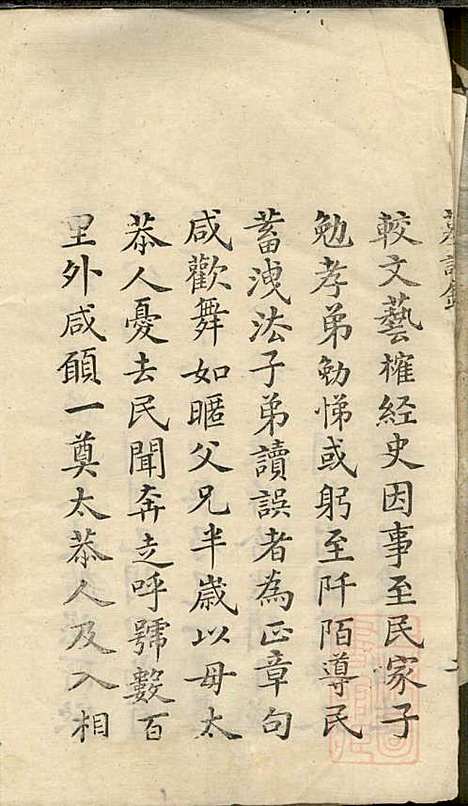 較文藝榷經史因事至民家子
勉孝弟勉悌或躬至阡陌導民
蓄洩法子弟讀誤者為正章句
咸歡舞如暱父兄半歲以母太
恭人憂去民聞奔走呼號數百
里外咸願一奠太恭人及入相